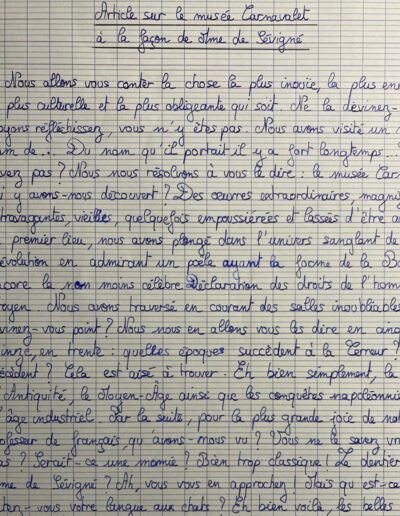 Article sur le musée Carnavalet
à la façon de Mme de Sévigné
Nous allons vous conter la chose la plus inouïe, la plus en
plus culturelle et la plus obligeante qui soit. Ne la devinez-
yons réfléchissez, vous n'y êtes pas. Nous avons visité un
m de... Du nom qu'il portait il y a fort longtemps...
vez pas ? Nous nous résolvons à vous le dire : le musée Car
'y avons-nous découvert ? Des œuvres extraordinaires, magni
travagantes, vieilles, quelquefois empoussiérées et lassées d'être a
premier lieu, nous avons plongé dans l'univers sanglant de
évolution en admirant un poêle ayant la forme de la Ba
core la non moins célèbre Déclaration des droits de l'hom
oyen. Nous avons traversé en courant des salles inoubliables
vinez-vous point ? Nous nous en allons vous les dire en
en trente : quelles époques succèdent à la Terreur ?
cèdent ? Cela est aisé à trouver. Eh bien simplement, la
Antiquité, le Moyen-Age ainsi que les conquêtes napoléonni
'âge industriel. Par la suite, pour la plus grande joie de not
ofesseur de français, qu'avons-nous vu ? Vous ne le savez
as ? Serait-ce une momie ? Bien trop classique ! Le dentier
me de Sévigné ? Ah, vous vous en approchez ! Mais qu'est-ce
tez-vous votre langue aux chats ? Eh bien voilà, les belles